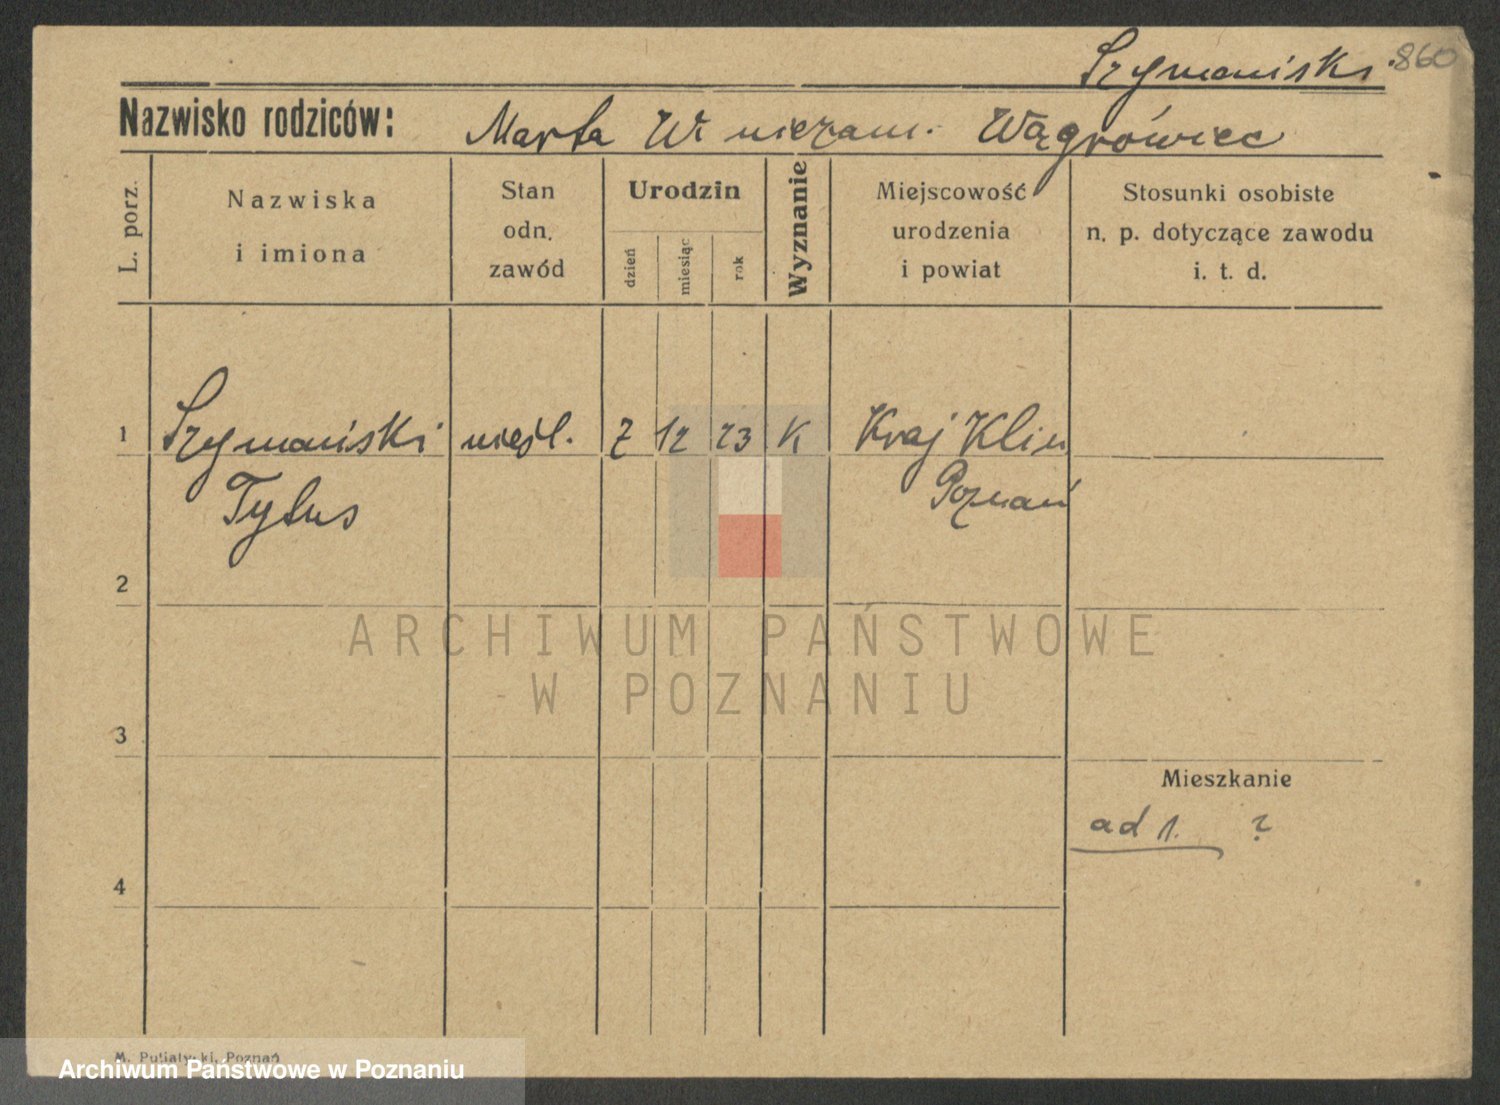 Szymański 860
Nazwisko rodziców: Marta W niezam. Wągrówiec
L. porz.
Nazwiska
i imiona
Stan
odn.
zawód
Urodzin
dzień
miesiąc
rok
Wyznanie
Miejscowość
urodzenia
i powiat
Stosunki osobiste
n. p. dotyczące zawodu
i. t. d.
1 Szymański nieśl. 7 12 23 K Kraj Klin
Tytus Poznań
2
ARCHIWUM PAŃSTWOWE
W POZNANIU
3
Mieszkanie
ad 1. ?
4
M. Putiatycki, Poznań
Archiwum Państwowe w Poznaniu